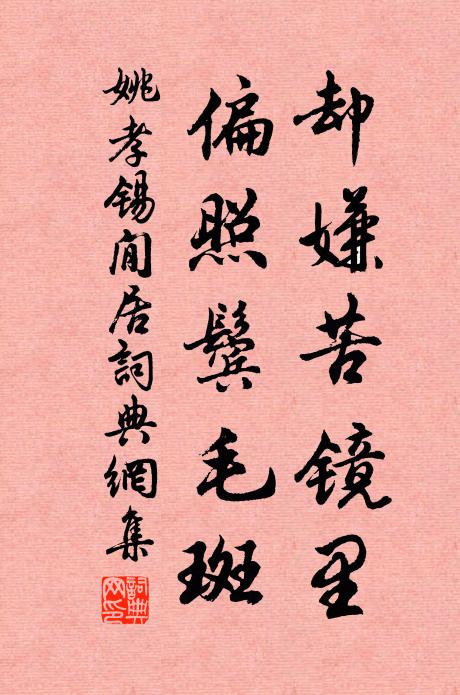 却嫌苦镜里
偏照鬓毛斑
姚孝锡閒居詞典網集
詞典網印